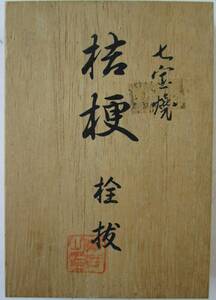 七宝焼
桔梗
栓抜